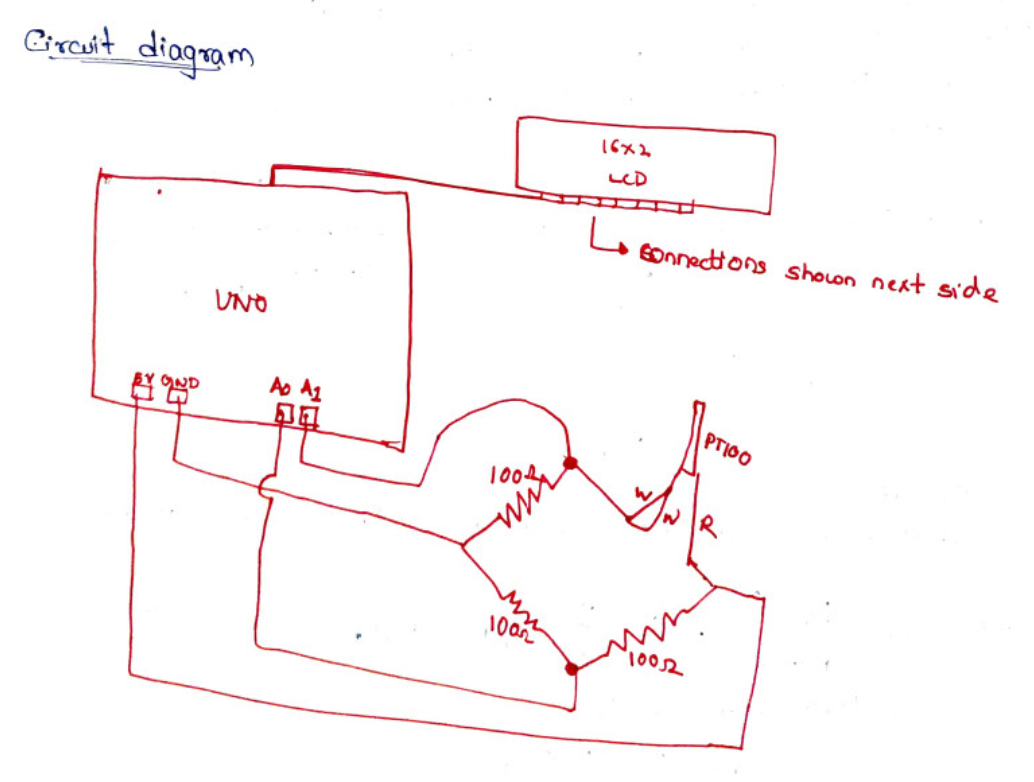 Circuit diagram
16x2
LCD
connections shown next side
UNO
5V GND
A0 A1
PT100
100Ω
W
W
R
100Ω
100Ω